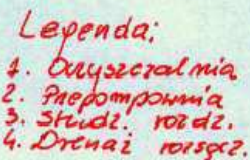 Legenda:
1. Oczyszczalnia
2. Przepompownia
3. Studz. rozdz.
4. Drenaż rozsącz.